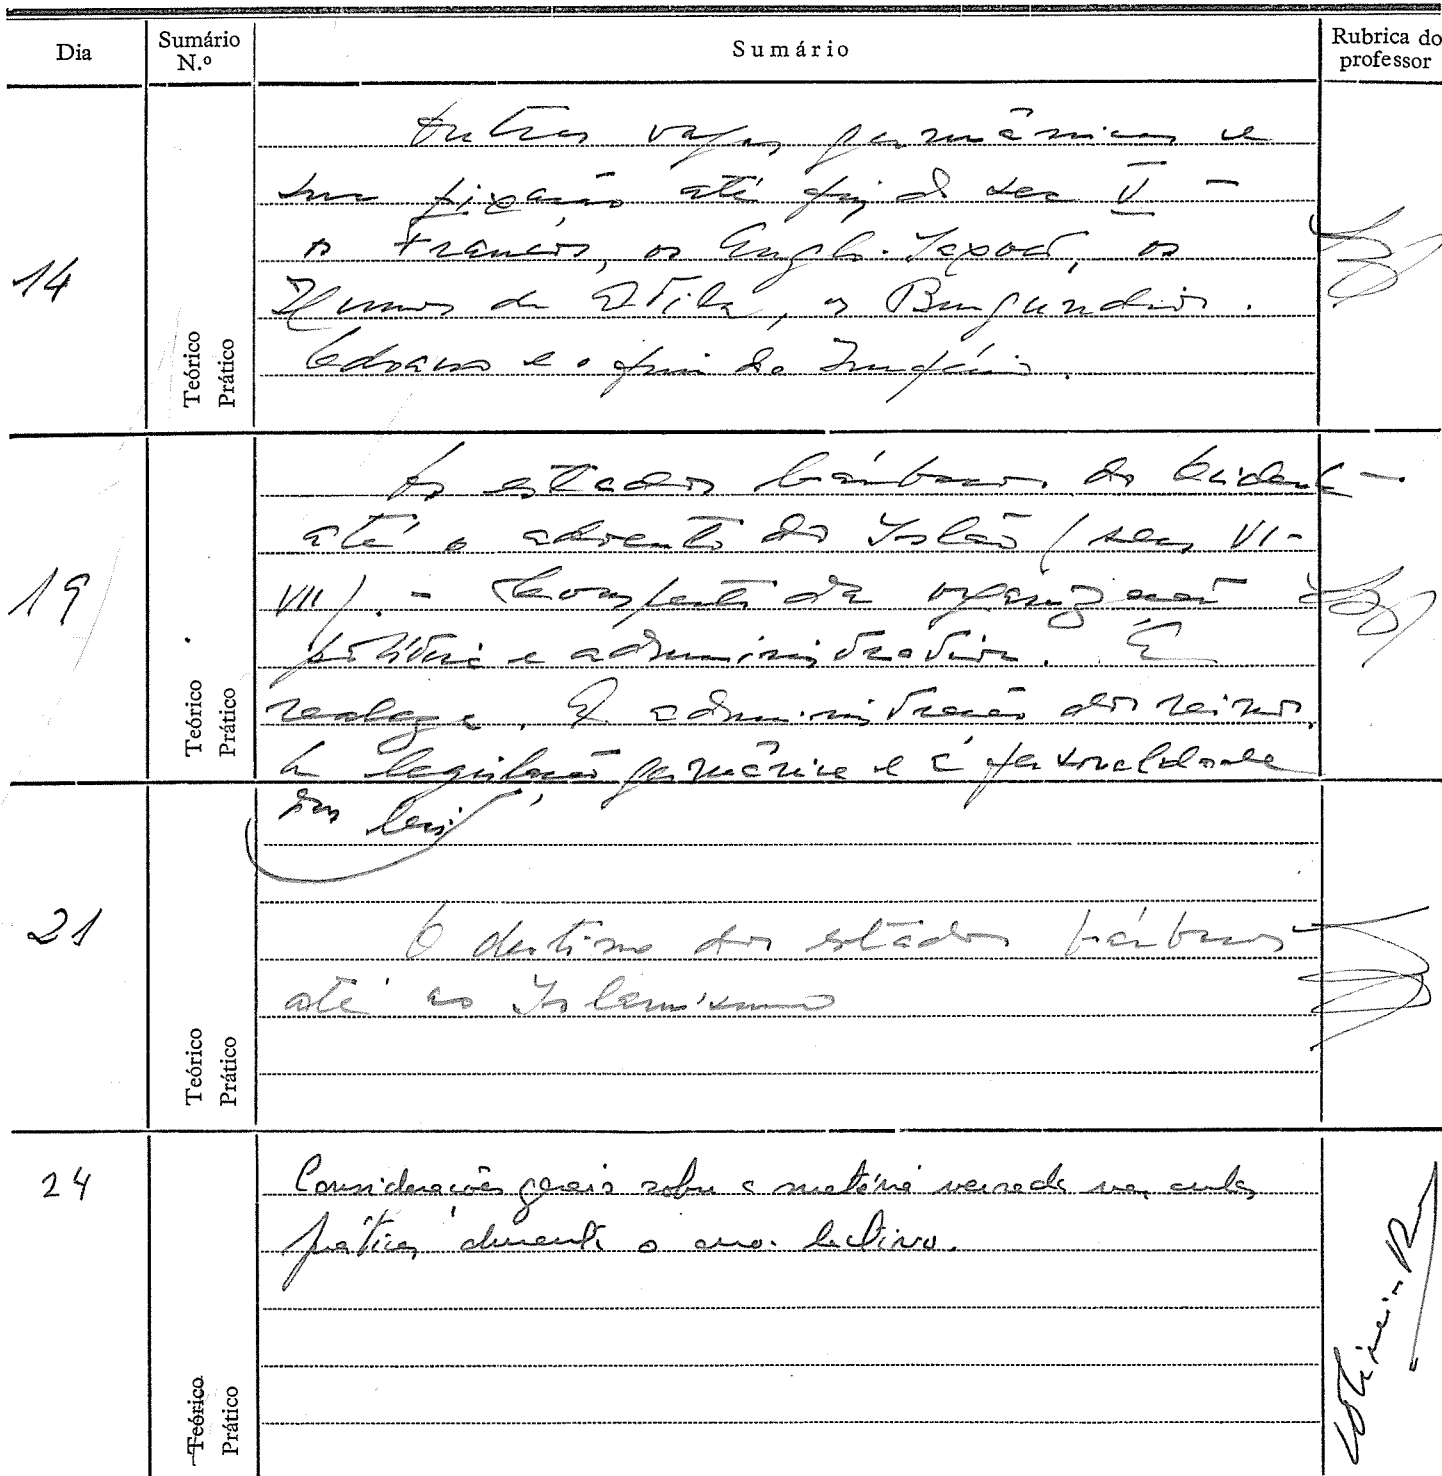 Dia
Sumário N.º
Sumário
Rubrica do professor
14
Teórico
Prático
Outras vagas germânicas e
sua fixação até fins do sec V –
os Francos, os Anglo-Saxões, os
Hunos de Átila, os Burgundios.
Odoacro e o fim do Império.
19
Teórico
Prático
Os estados bárbaros do Ocidente
até o advento do Islão (secs VI-
VII). –
da organização
política e administrativa. A
realeza. A administração dos reinos.
A legislação germânica e a personalidade
das leis.
21
Teórico
Prático
O destino dos estados bárbaros
até ao Islamismo
24
Teórico
Prático
Considerações gerais sobre a matéria versada nas aulas
práticas durante o ano lectivo.